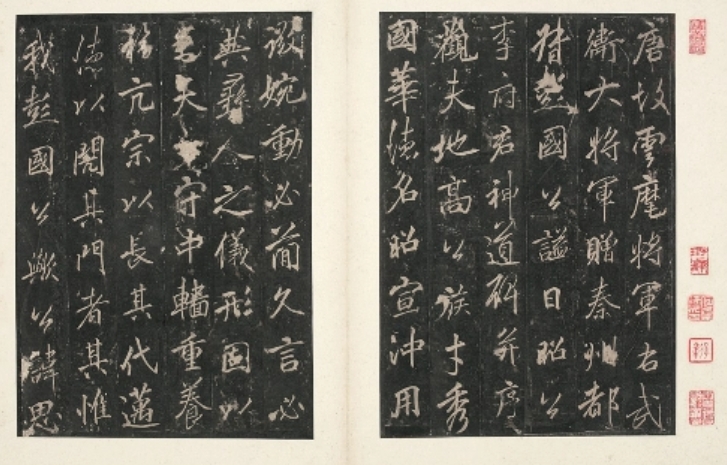 唐故雲麾將軍右武
衛大將軍贈秦州都
督彭國公謚曰昭公
李府君神道碑并序
觀夫地高公族才秀
國華德名昭宣沖用
微婉動必簡久言必
典彝人之儀形固以
守中輜重養
福亢宗以長其代邁
德以閎其門者其惟
我彭國公歟公諱思